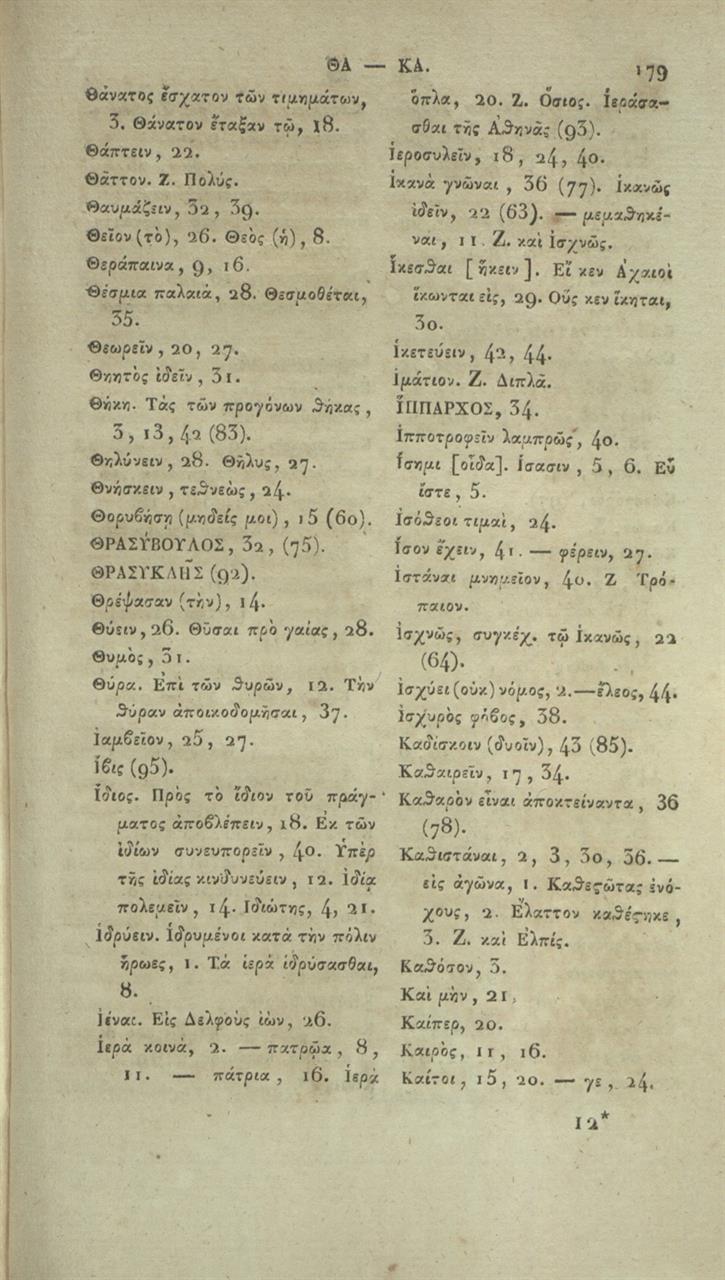 ΘΑ — ΚΑ. 179
Θάνατος ἔσχατον τῶν τιμημάτων,
3. Θάνατον ἔταξαν τῷ, 18.
Θάπτειν, 22.
Θᾶττον. Ζ. Πολύς.
Θαυμάζειν, 32, 39.
Θεῖον (τὸ), 26. Θεὸς (ἡ), 8.
Θεράπαινα, 9, 16.
Θέσμια παλαιά, 28. Θεσμοθέται,
35.
Θεωρεῖν, 20, 27.
Θηητὸς ἰδεῖν, 31.
Θήκη. Τάς τῶν προγόνων ϑήκας,
3, 13, 42 (83).
Θηλύνειν, 28. Θῆλυς, 27.
Θνήσκειν, τεϑνεὼς, 24.
Θορυβήσῃ (μηδείς μοι), 15 (60).
ΘΡΑΣΎΒΟΥΛΟΣ, 32, (75).
ΘΡΑΣΥΚΛΗ͂Σ (92).
Θρέψασαν (τὴν), 14.
Θύειν, 26. Θῦσαι πρὸ γαίας, 28.
Θυμὸς, 31.
Θύρα. Ἐπὶ τῶν ϑυρῶν, 12. Τὴν
ϑύραν ἀποικοδομῆσαι, 37.
Ἰαμβεῖον, 25, 27.
Ἶβις (95).
Ἴδιος. Πρὸς τὸ ἴδιον τοῦ πράγ-
ματος ἀποβλέπειν, 18. Ἐκ τῶν
ἰδίων συνευπορεῖν, 40. Ὑπὲρ
τῆς ἰδίας κινδυνεύειν, 12. Ἰδίᾳ
πολεμεῖν, 14. Ἰδιώτης, 4, 21.
Ἱδρύειν. Ἱδρυμένοι κατὰ τὴν πόλιν
ἥρωες, 1. Τά ἱερὰ ἱδρύσασθαι,
8.
Ἰέναι. Εἰς Δελφοὺς ἰὼν, 26.
Ἱερὰ κοινά, 2. — πατρῷα, 8,
11. — πάτρια, 16. Ἱερὰ
ὅπλα, 20. Ζ. Ὅσιος. Ἱεράσα-
σθαι τῆς Ἀϑηνᾶς (93).
Ἱεροσυλεῖν, 18, 24, 40.
Ἱκανὰ γνῶναι, 36 (77). Ἱκανῶς
ἰδεῖν, 22 (63). — μεμαϑηκέ-
ναι, 11. Ζ. καὶ Ἰσχνῶς.
Ἱκεσϑαι [ἥκειν]. Εἴ κεν Ἀχαιοὶ
ἵκωνται εἰς, 29. Οὕς κεν ἵκηται,
30.
Ἱκετεύειν, 42, 44.
Ἱμάτιον. Ζ. Διπλᾶ.
ἽΠΠΑΡΧΟΣ, 34.
Ἱπποτροφεῖν λαμπρῶς, 40.
Ἴσημι [οἶδα]. Ἴσασιν, 5, 6. Εὖ
ἴστε, 5.
Ἰσόϑεοι τιμαὶ, 24.
Ἴσον ἔχειν, 41. — φέρειν, 27.
Ἱστάναι μνημεῖον, 40. Ζ Τρό-
παιον.
Ἰσχνῶς, συγκέχ. τῷ Ἱκανῶς, 22
(64).
Ἰσχύει (οὐκ) νόμος, 2.—ἔλεος, 44.
Ἰσχυρὸς φόβος, 38.
Καδίσκοιν (δυοῖν), 43 (85).
Καϑαιρεῖν, 17, 34.
Καϑαρὸν εἶναι ἀποκτείναντα, 36
(78).
Καϑιστάναι, 2, 3, 30, 36. —
εἰς ἀγῶνα, 1. Καϑεϛῶτας ἐνό-
χους, 2. Ἔλαττον καϑέϛηκε,
3. Ζ. καὶ Ἐλπίς.
Καϑόσον, 3.
Καὶ μὴν, 21,
Καίπερ, 20.
Καιρὸς, 11, 16.
Καίτοι, 15, 20. — γε, 24.
12*